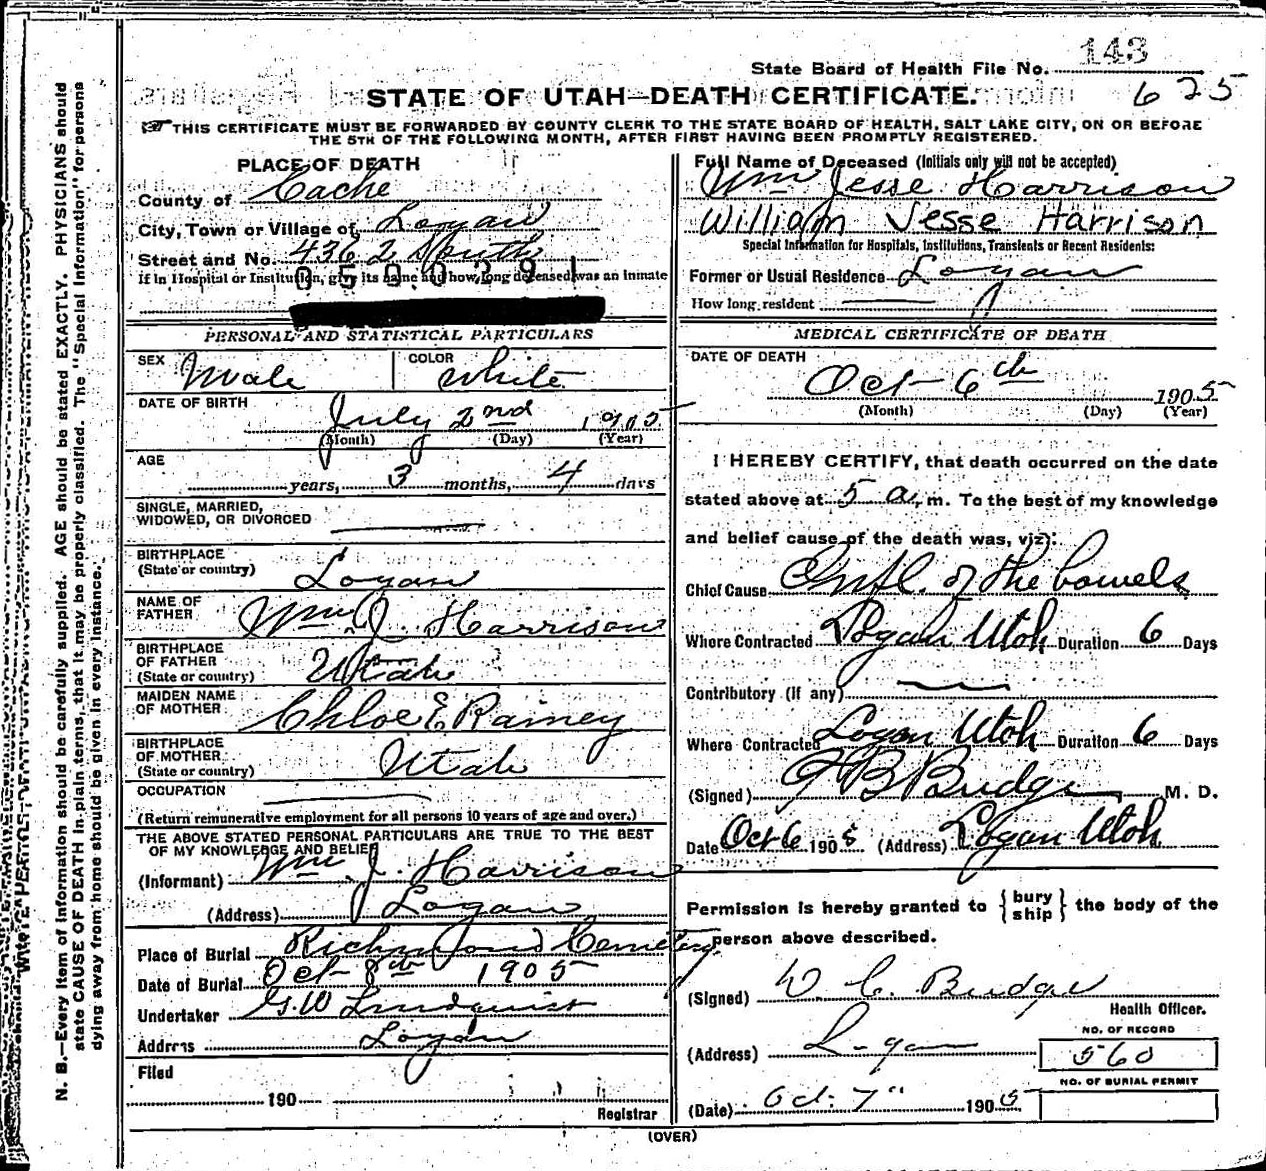 143
State Board of Health File No.
STATE OF UTAH—DEATH CERTIFICATE.
625
THIS CERTIFICATE MUST BE FORWARDED BY COUNTY CLERK TO THE STATE BOARD OF HEALTH, SALT LAKE CITY, ON OR BEFORE
THE 5TH OF THE FOLLOWING MONTH, AFTER FIRST HAVING BEEN PROMPTLY REGISTERED.
PLACE OF DEATH
County of Cache
City, Town or Village of Logan
Street and No. 436 2 South
If in Hospital or Institution, give its name and how long deceased was an inmate
0500291
Full Name of Deceased (Initials only will not be accepted)
Wm Jesse Harrison
William Jesse Harrison
Special Information for Hospitals, Institutions, Transients or Recent Residents:
Former or Usual Residence Logan
How long resident
PERSONAL AND STATISTICAL PARTICULARS
SEX Male COLOR White
DATE OF BIRTH
July 2nd 1905
(Month) (Day) (Year)
AGE
years, 3 months, 4 days
SINGLE, MARRIED,
WIDOWED, OR DIVORCED
BIRTHPLACE
(State or country) Logan
NAME OF
FATHER Wm J. Harrison
BIRTHPLACE
OF FATHER
(State or country) Utah
MAIDEN NAME
OF MOTHER Chloe E Rainey
BIRTHPLACE
OF MOTHER
(State or country) Utah
OCCUPATION
(Return remunerative employment for all persons 10 years of age and over.)
THE ABOVE STATED PERSONAL PARTICULARS ARE TRUE TO THE BEST
OF MY KNOWLEDGE AND BELIEF
(Informant) Wm. J. Harrison
(Address) Logan
Place of Burial Richmond Cemetery.
Date of Burial Oct 8th 1905
Undertaker G. W Lundquist
Address Logan
Filed
190
Registrar
MEDICAL CERTIFICATE OF DEATH
DATE OF DEATH
Oct 6th 1905
(Month) (Day) (Year)
I HEREBY CERTIFY, that death occurred on the date
stated above at 5 a, m. To the best of my knowledge
and belief cause of the death was, viz:
Chief Cause Infl. of the bowels
Where Contracted Logan Utah Duration 6 Days
Contributory (if any)
Where Contracted Logan Utah Duration 6 Days
(Signed) Budge M. D.
Date Oct 6 1905 (Address) Logan Utah
Permission is hereby granted to {bury ship} the body of the
person above described.
(Signed) D. C. Budge
Health Officer.
(Address) Logan
NO. OF RECORD
560
NO. OF BURIAL PERMIT
(Date) Oct. 7" 1905
(OVER)
N. B.—Every item of information should be carefully supplied. AGE should be stated EXACTLY. PHYSICIANS should
state CAUSE OF DEATH in plain terms, that it may be properly classified. The "Special Information" for persons
dying away from home should be given in every instance.